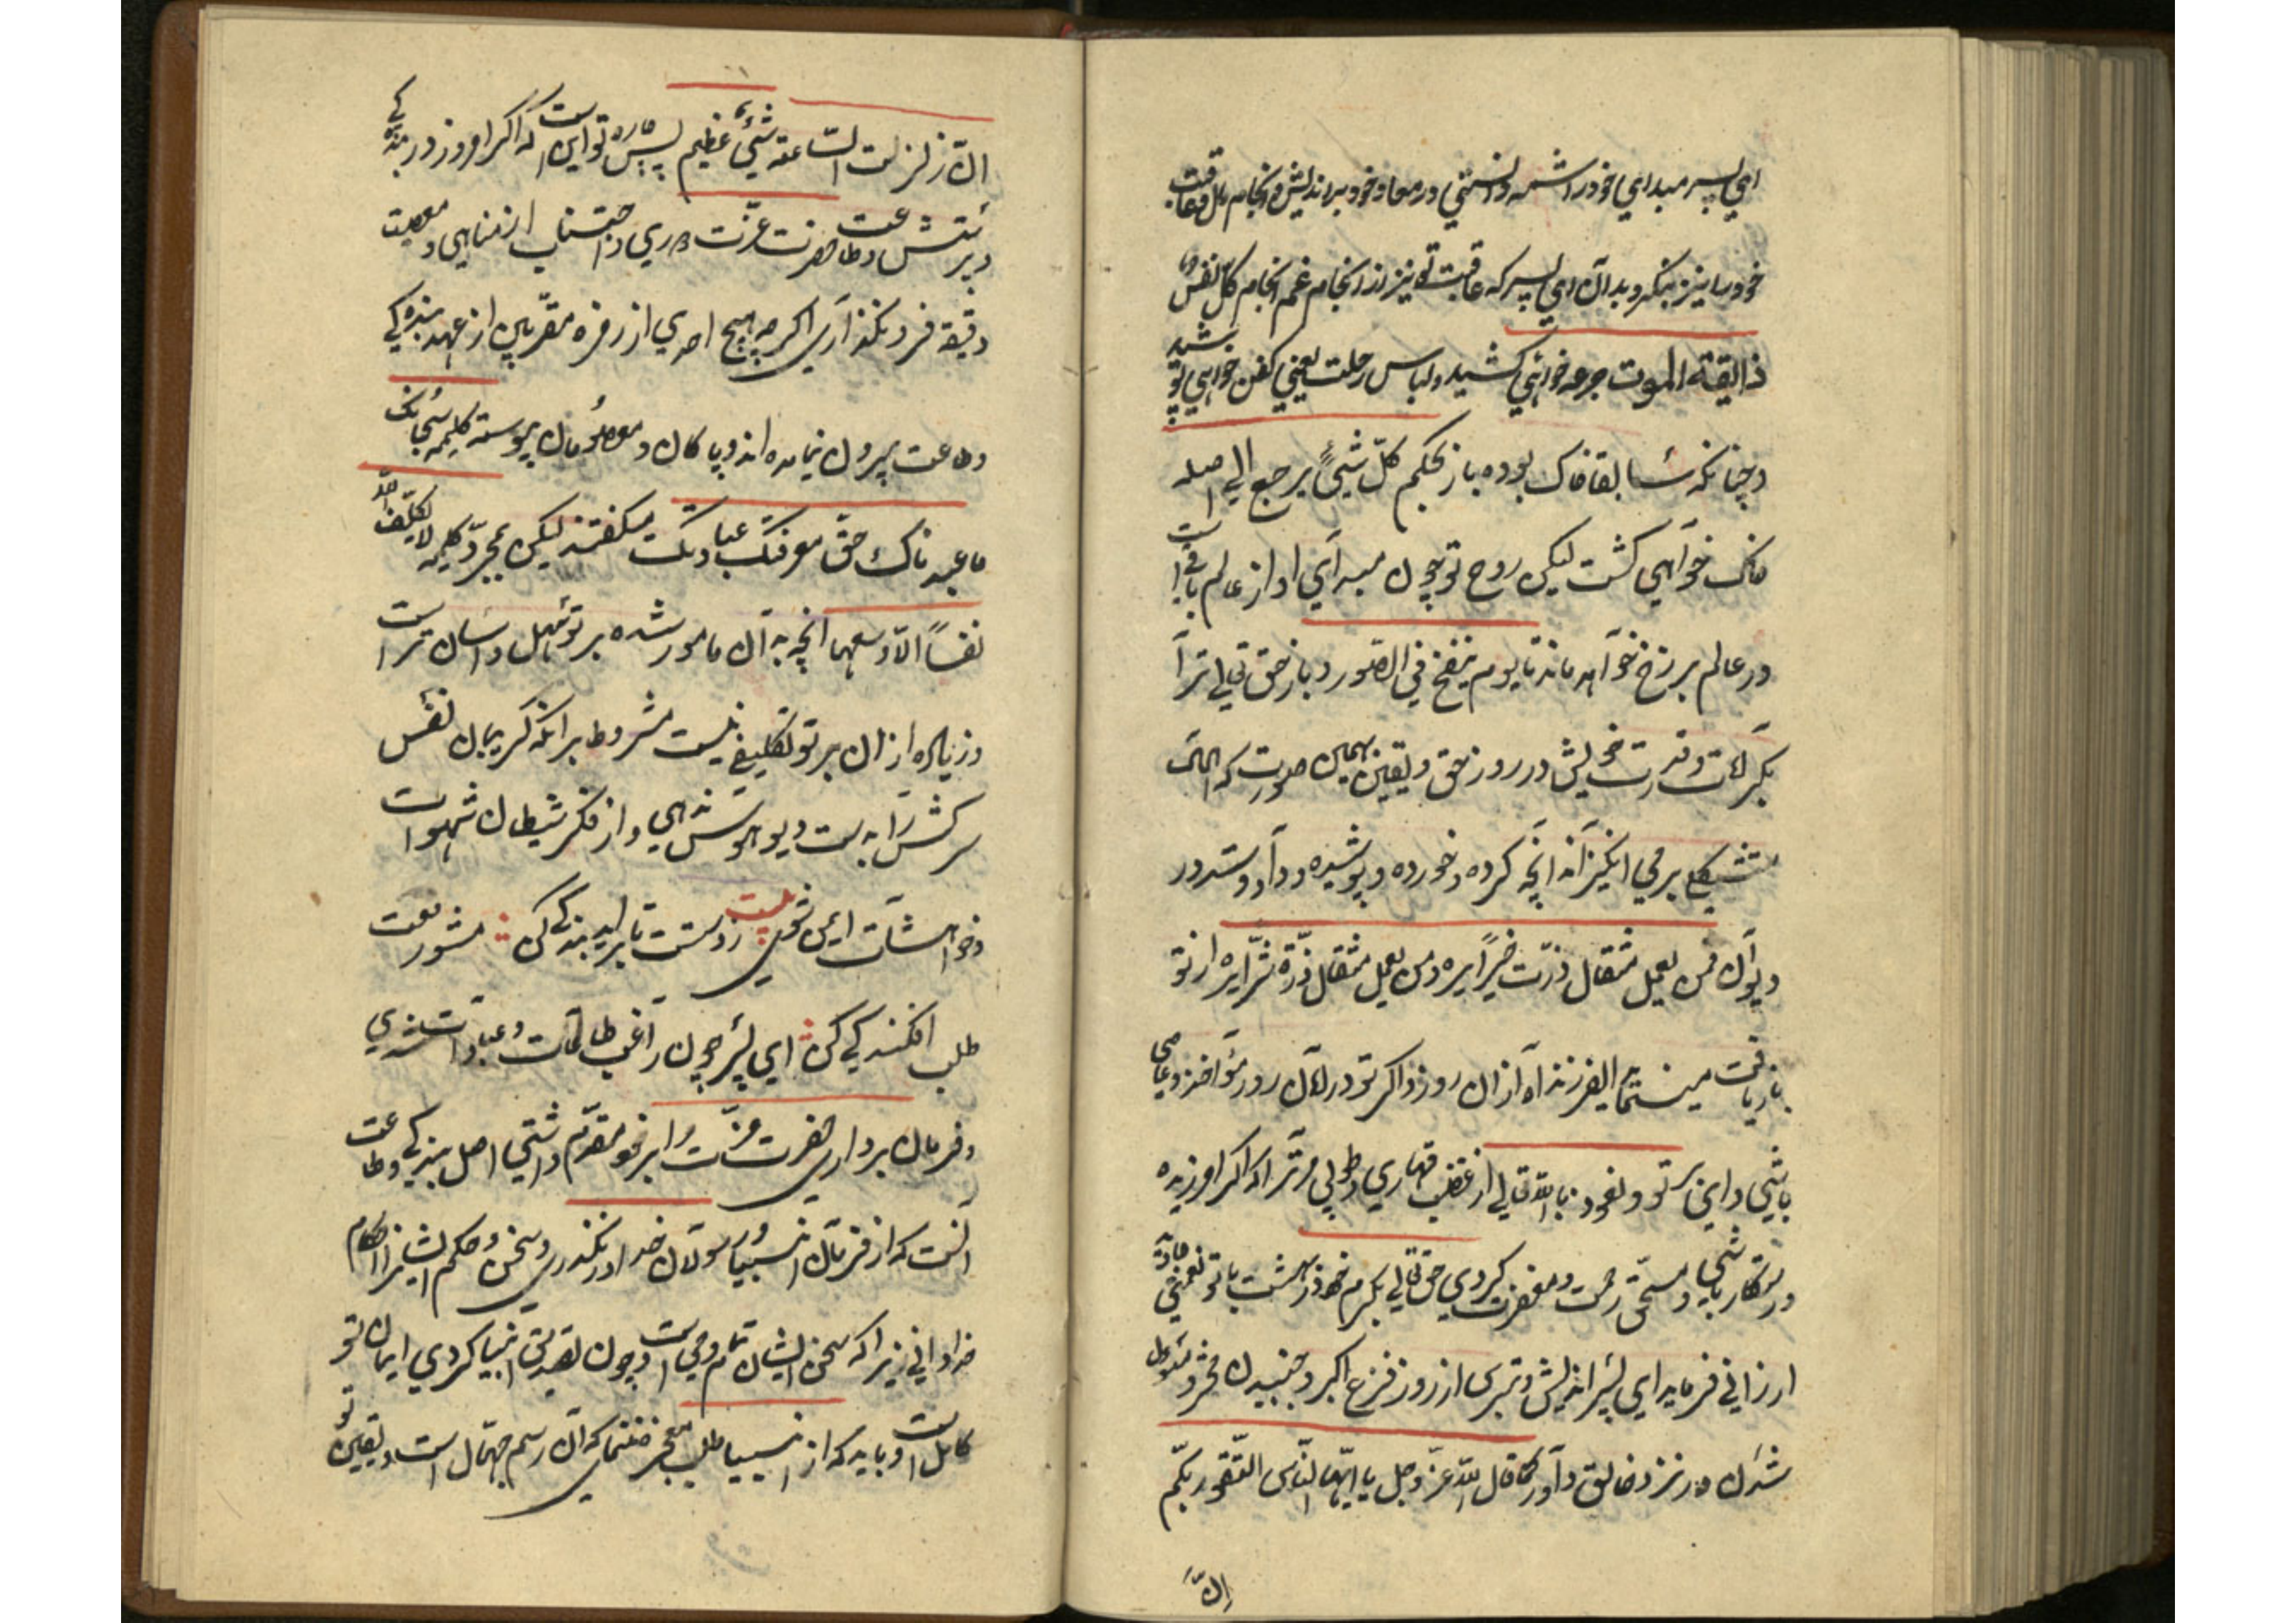 ای پسر مبدای خود را شناختی و دانستی در معاد خود براندیش و انجام مآل و عاقبت
خود را نیز بنگر و بدان ای پسر که عاقبت تو نیز از انجام غم انجام کل نفس
ذایقة الموت جرعه خواهی کشید و لباس رحلت یعنی کفن خواهی پوشید
و چنانکه سابقا خاک بوده باز بحکم کل شیء یرجع الی اصله
خاک خواهی گشت لیکن روح تو چون مبدای او از عالم باقی است
در عالم برزخ خواهد ماند تا یوم ینفخ فی الصور و باز حق تعالی ترا
بکمالات و قدرت خویش در روز حق و یقین بهمین صورت که الحال
برمی انگیزاند آنچه کرده و خورده و پوشیده و داد و ستد در
دیوان فمن یعمل مثقال ذرت خیرا یره و من یعمل مثقال ذرة شرا یره از تو
بازیافت مینماید ای فرزند آه از آن روز و اگر تو در آن روز مؤاخذ و عاصی
باشی وای بر تو و نعوذ بالله تعالی از غضب قهاری و طوبی مر ترا که اگر امروز بنده
و رستگار باشی و مستحق رحمت و مغفرت گردی حق تعالی بکرم خود در بهشت با تو نعمتی
ارزانی فرماید ای پسر اندیش و ترس از روز فزع اکبر و جنبیدن محشر و
شدن در نزد خالق داور کما قال الله عز و جل یا ایها الناس اتقوا ربکم
ان
ان زلزلت الساعة شیء عظیم پس چاره تو این است که اگر امروز در بندگی
و پرستش و طاعت حضرت عزت داری و اجتناب از مناهی و معصیت
دقیقه فرو نگذاری اگر چه هیچ احدی از زمره مقربین از عهد بندگی
و طاعت بیرون نیامده اند و پاکان و معصومان پیوسته کلمه سبحانک
ما عبدناک حق معرفتک عبادتک میگفتند لیکن بمجرد کلمه لا یکلف الله
نفسا الا وسعها آنچه به آن مامور شده بر تو سهل و آسان تر است
و زیاده از آن بر تو تکلیفی نیست مشروط بر آنکه گریبان نفس
سرکش را به دست دیو هوس ندهی و از فکر شیطان شهوات
و خواهشات ایمن شوی بیت زدستت تا براید بندگی کن مشو رفعت
طلب افکندگی کن ای پسر چون راغب طاعات و عبادات شدی
و فرمان برداری حضرت عزت را بر خود مقدم داشتی اصل بندگی و طاعت
آنست که از فرمان انبیا و رسولان خدا در نگذری و سخن و حکم ایشان را احکام
خدا دانی زیرا که سخن ایشان تمام وحی است و چون تصدیق انبیا کردی ایمان تو
کامل است و باید که از انبیا طلب معجز ننمائی که آن رسم جهال است و یقین تو